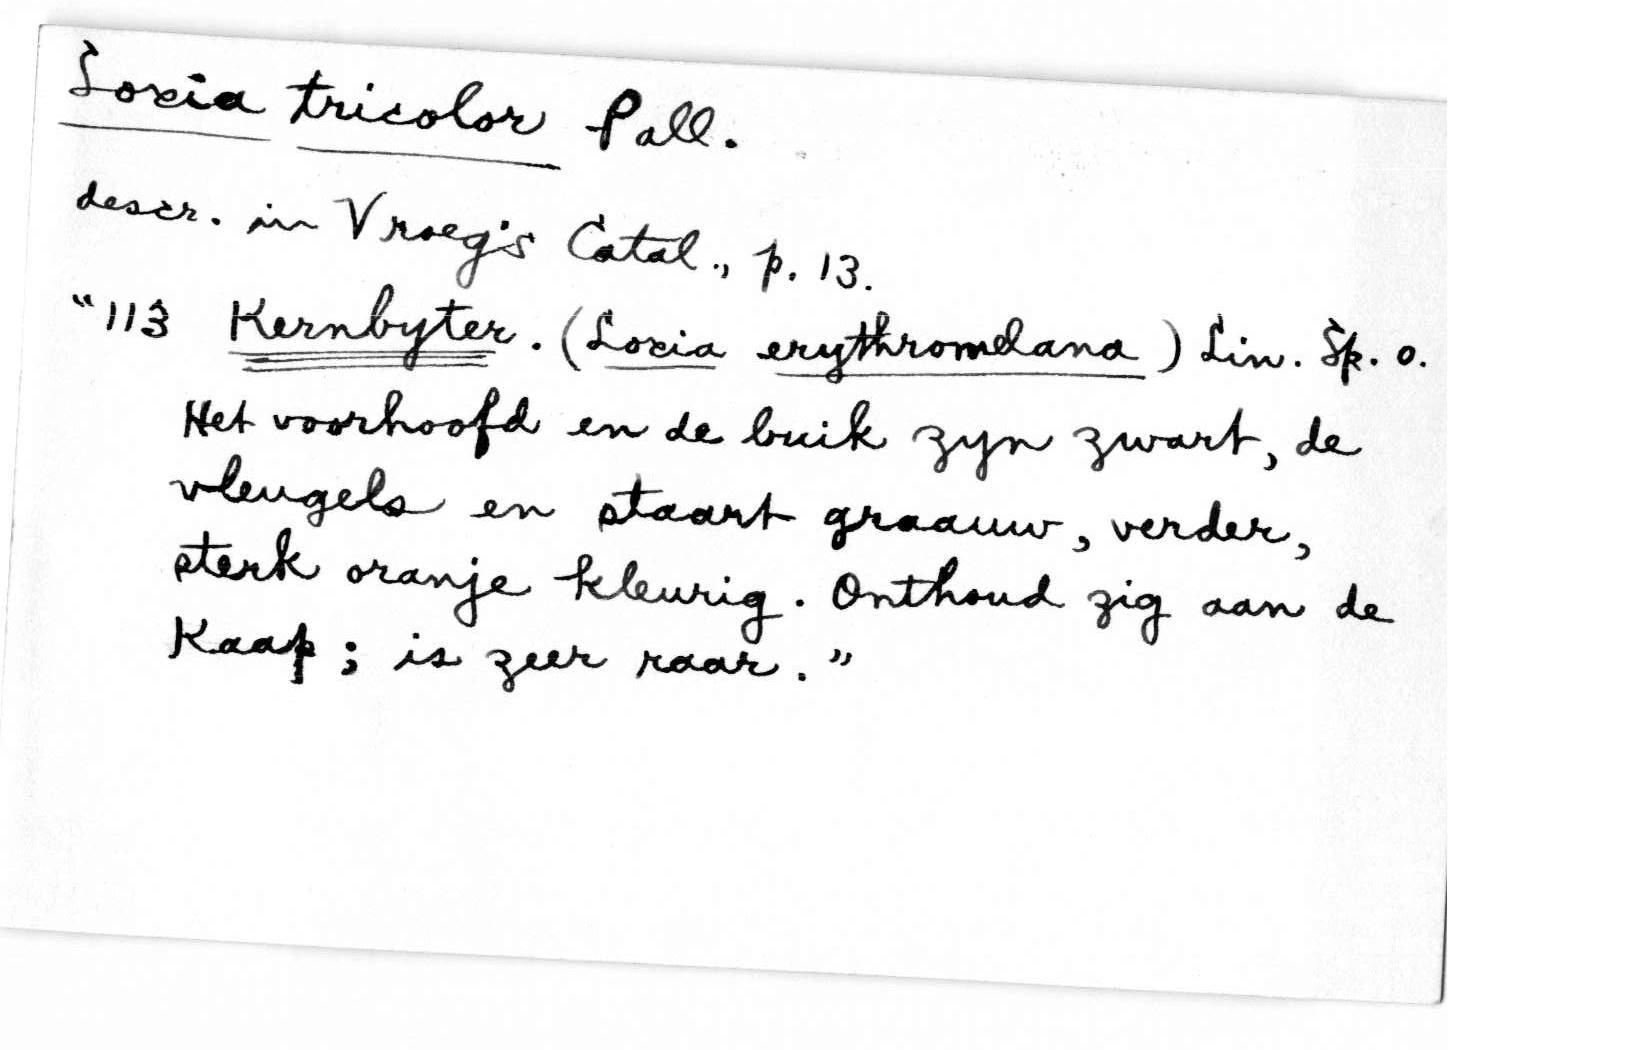 Loxia tricolor Pall.
descr. in Vroeg's Catal., p. 13.
"113 Kernbyter. (Loxia erythromelana) Lin. Sp. o.
Het voorhoofd en de buik zyn zwart, de
vleugels en staart graauw, verder,
sterk oranje kleurig. Onthoud zig aan de
Kaap; is zeer raar."